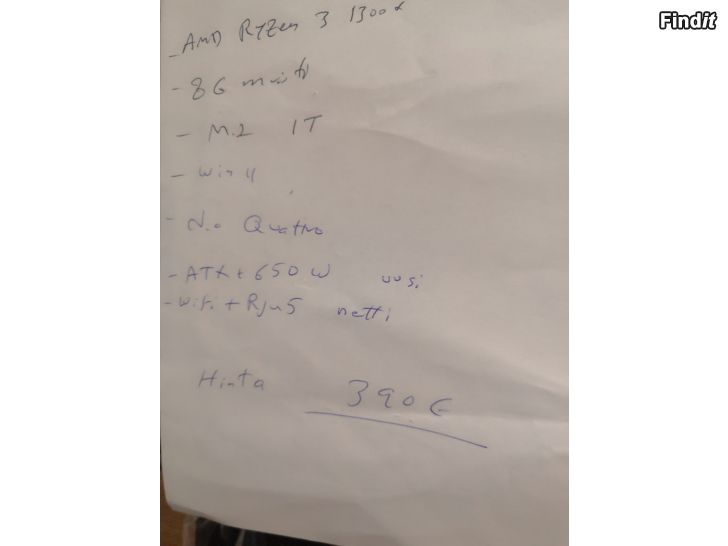 Findit
- AMD RYZen 3 1300x
- 8G
- M.2 1T
- Win 11
- Quatro
- ATX 650W uusi
- Wifi + RJ45 netti
Hinta 390€